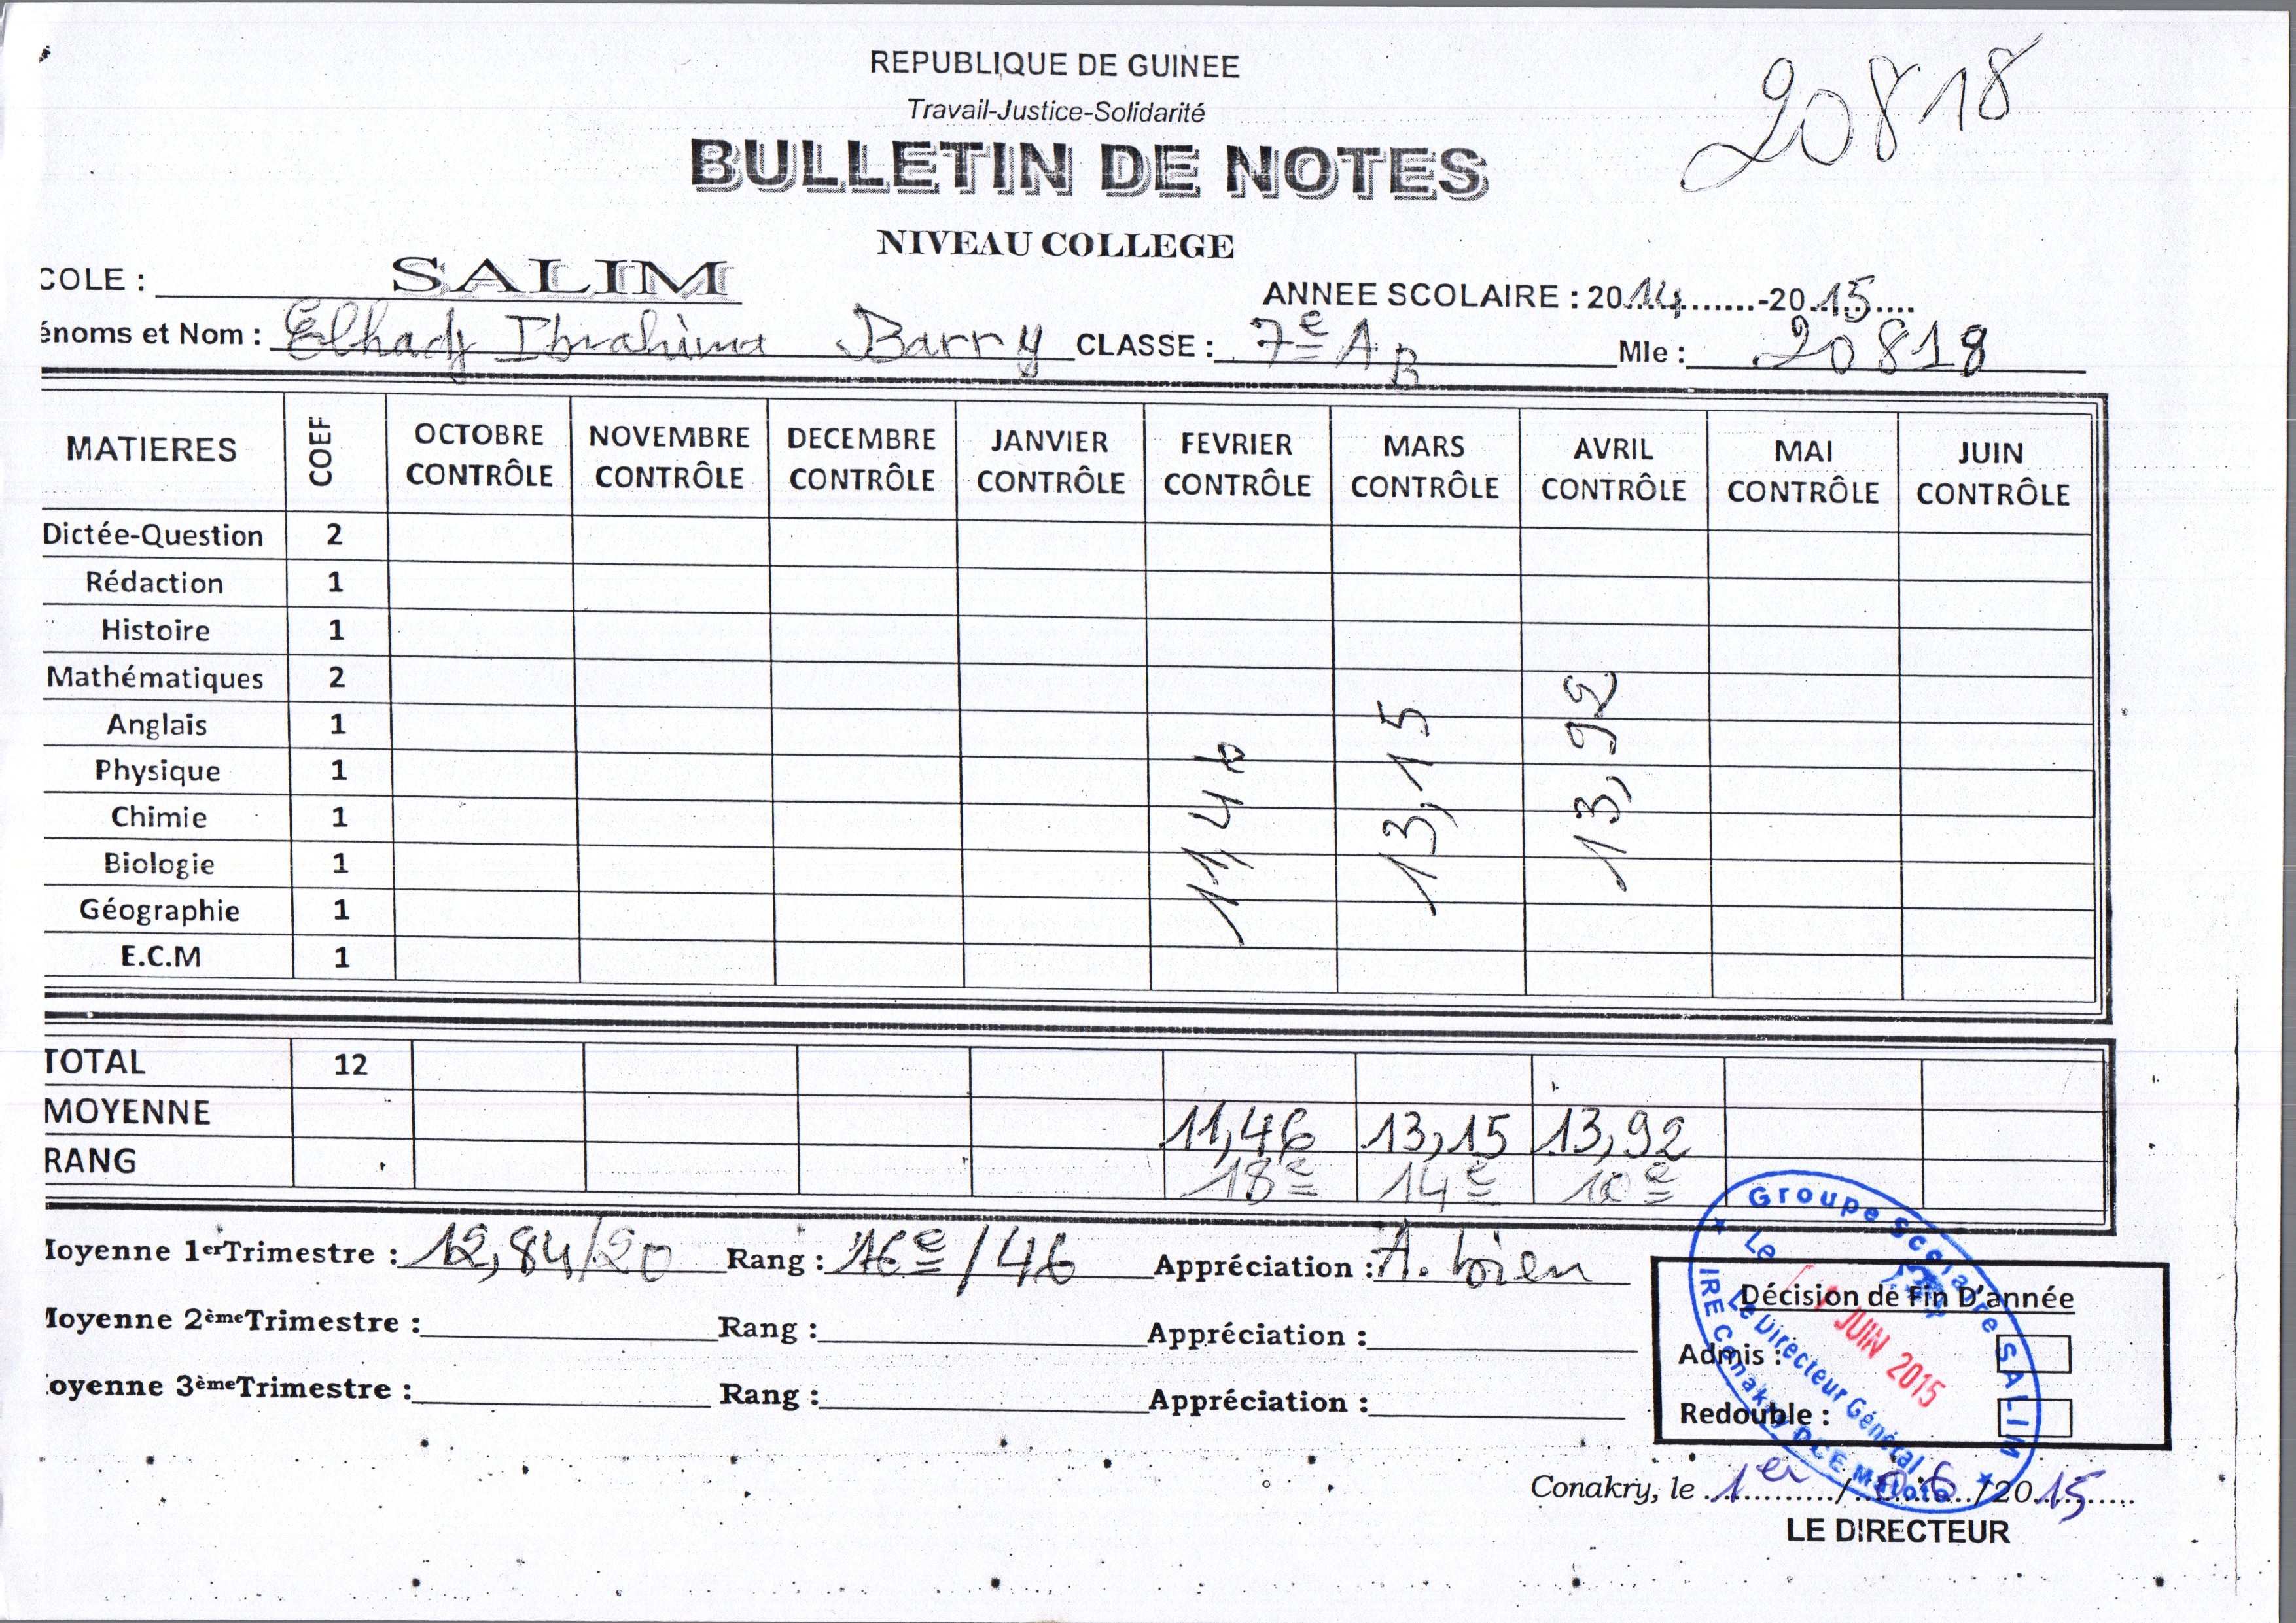 REPUBLIQUE DE GUINEE
Travail-Justice-Solidarité
20818
BULLETIN DE NOTES
NIVEAU COLLEGE
COLE : SALIM
ANNEE SCOLAIRE : 2014........-2015....
énoms et Nom : Elhadj Ibrahima Barry CLASSE : 7e A B Mle : 20818
MATIERES COEF OCTOBRE CONTRÔLE NOVEMBRE CONTRÔLE DECEMBRE CONTRÔLE JANVIER CONTRÔLE FEVRIER CONTRÔLE MARS CONTRÔLE AVRIL CONTRÔLE MAI CONTRÔLE JUIN CONTRÔLE
Dictée-Question 2
Rédaction 1
Histoire 1
Mathématiques 2
Anglais 1
Physique 1
Chimie 1
Biologie 1
Géographie 1
E.C.M 1
11,46 13,15 13,92
TOTAL 12
MOYENNE 11,46 13,15 13,92
RANG 18e 14e 10e
oyenne 1erTrimestre : 12,84/20 Rang : 16e/46 Appréciation : A. bien
oyenne 2èmeTrimestre : Rang : Appréciation :
oyenne 3èmeTrimestre : Rang : Appréciation :
Décision de Fin D'année
Admis :
Redouble :
Groupe Scolaire SALIM
Le Directeur Général
JUIN 2015
Conakry DCE Matoto
Conakry, le 1er/06/2015
LE DIRECTEUR